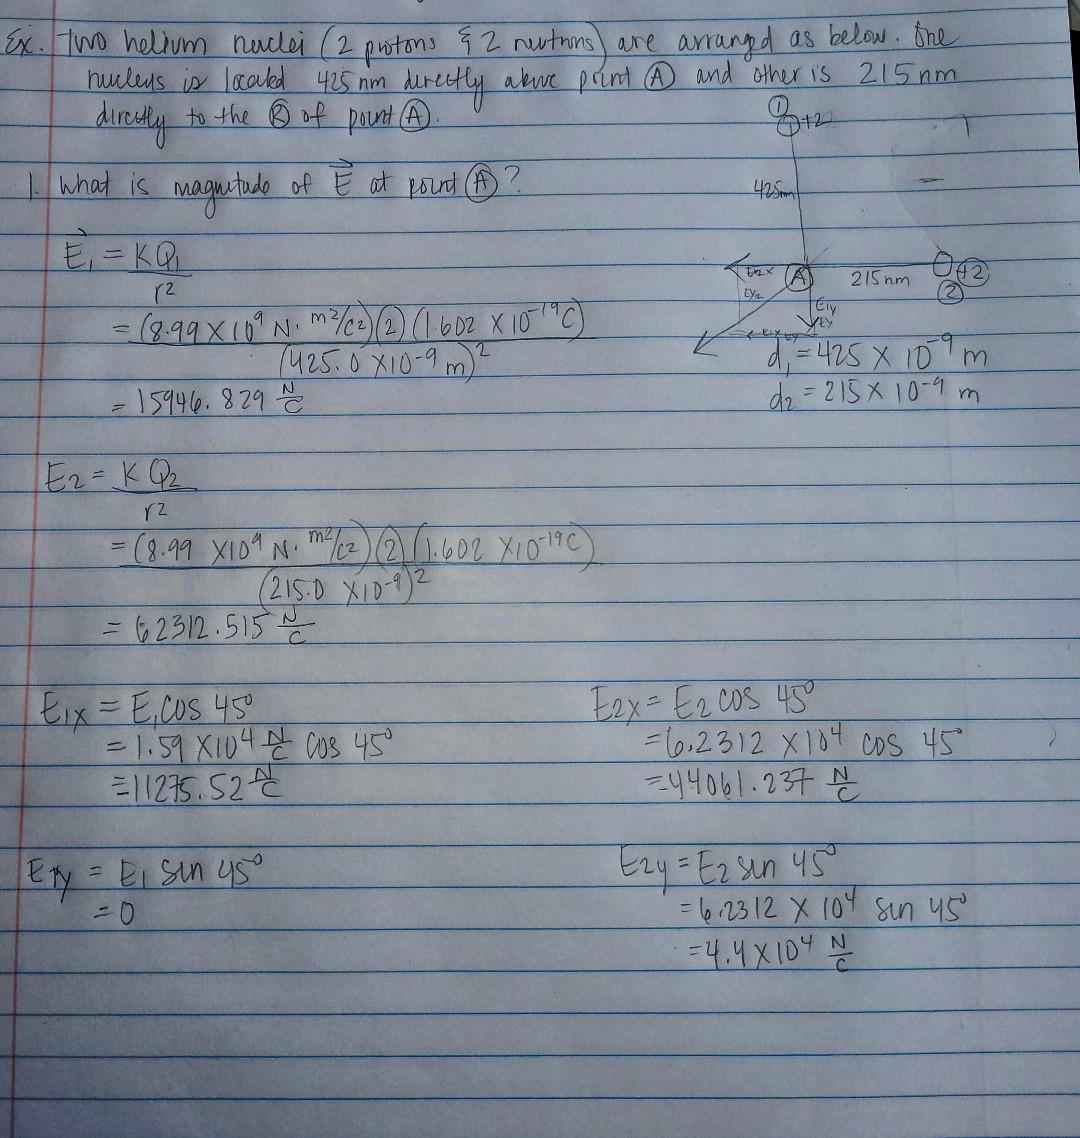 Ex. Two helium nuclei (2 protons & 2 neutrons) are arranged as below. One
nucleus is located 425 nm directly above point Ⓐ and other is 215 nm
directly to the Ⓡ of point Ⓐ.
① +2
425nm
1. What is magnitude of E⃗ at point Ⓐ?
E⃗₁ = KQ₁
r²
= (8.99 × 10⁹ N· m²/C²)(2)(1.602 × 10⁻¹⁹C)
(425.0 × 10⁻⁹ m)²
= 15946.829 N/C
E2x Ⓐ 215 nm +2
②
E1y
Ey
d₁ = 425 × 10⁻⁹ m
d₂ = 215 × 10⁻⁹ m
E₂ = K Q₂
r²
= (8.99 ×10⁹ N· m²/C²)(2)(1.602 ×10⁻¹⁹C)
(215.0 ×10⁻⁹)²
= 62312.515 N/C
E1x = E₁cos 45°
= 1.59 ×10⁴ N/C cos 45°
= 11275.52 N/C
E2x = E₂ cos 45°
= 6.2312 ×10⁴ cos 45°
= 44061.237 N/C
E1y = E₁ sin 45°
= 0
E2y = E₂ sin 45°
= 6.2312 × 10⁴ sin 45°
= 4.4 × 10⁴ N/C